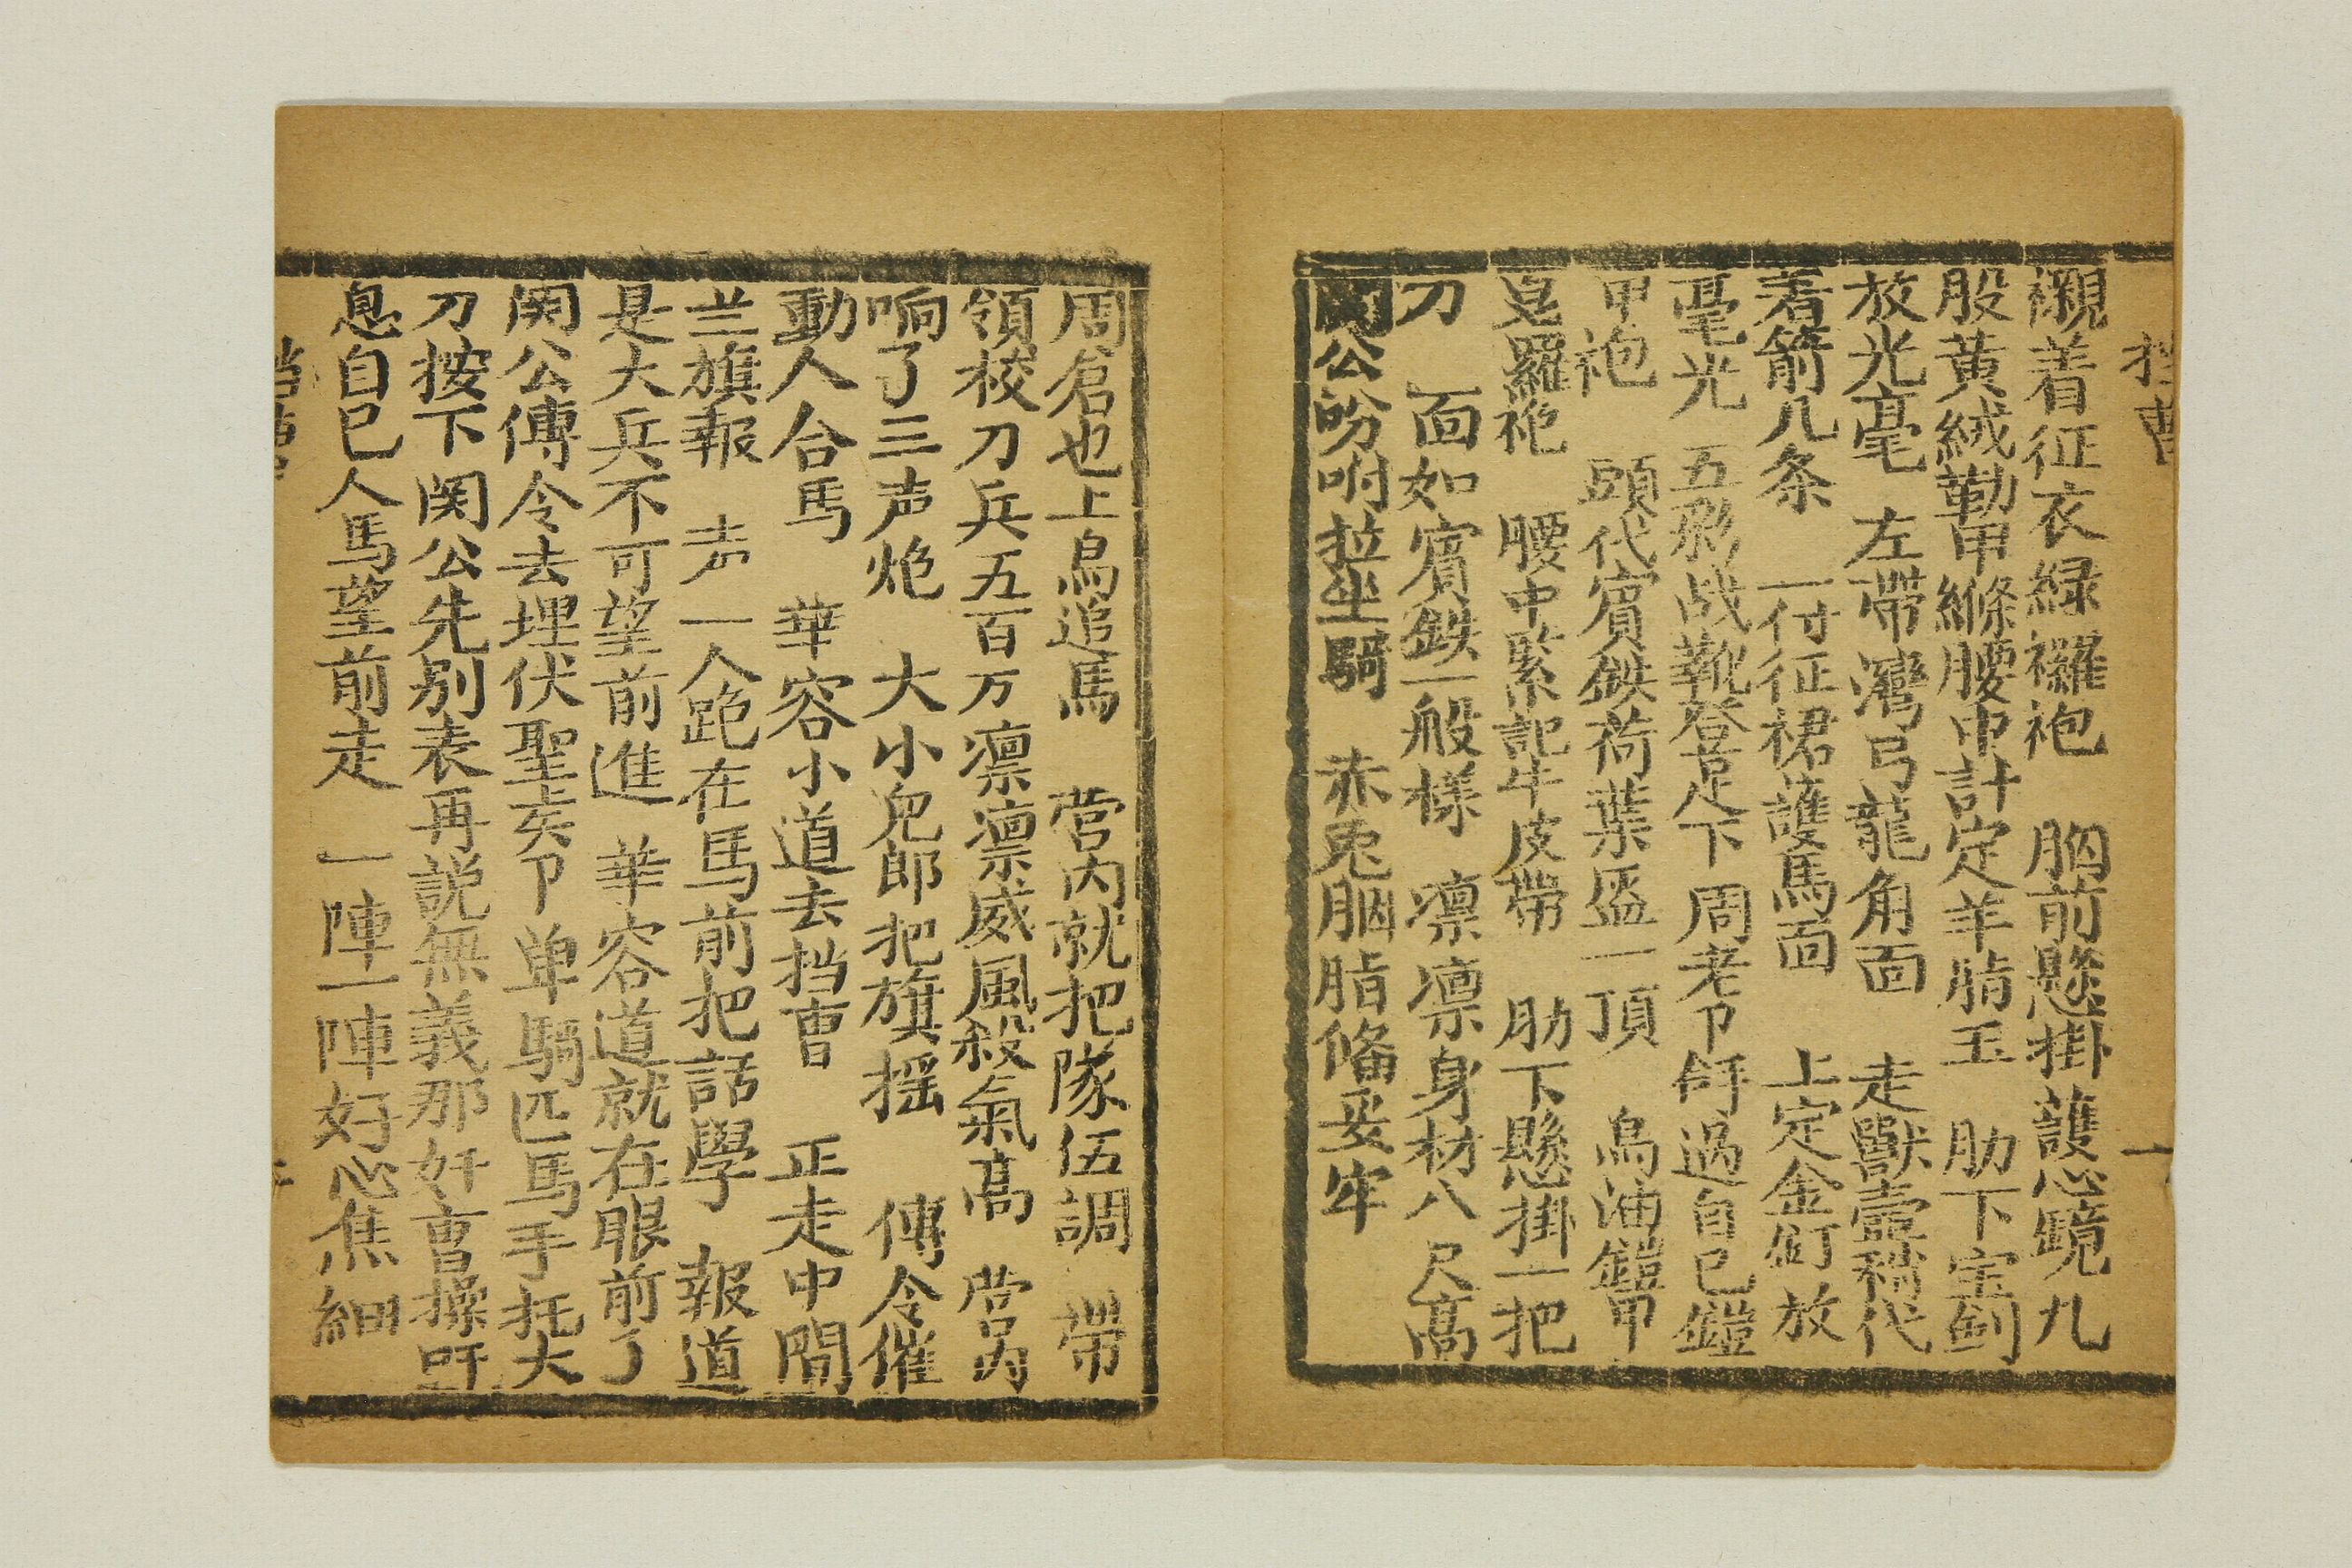 挡曹 一
襯着征衣緑襬袍 胸前懸掛護心鏡九
股黄絨勒甲縧腰中計定羊脂玉 肋下宝剑
放光毫 左帶灣弓龍角面 走獸壼稍代
着箭几条 一付征裙護馬面 上定金釘放
毫光 五彩战靴登足下 周老卩 過自已鎧
甲袍 頭代賓鉄荷葉盔一頂 烏油鎧甲
皂羅袍 腰中緊記牛皮帶 肋下懸掛一把
刀 面如賓鉄一般樣 凛凛身材八尺高
関公吩咐拉坐騎 赤兎胭脂俻妥牢
周倉也上烏追馬 营内就把隊伍調 帶
領校刀兵五百万凛凛威風殺氣高 营内
响了三声炮 大小児郎把旗摇 傳令催
動人合馬 華容小道去挡曹 正走中間
兰旗報 声 一人跪在馬前把話學 報道
是大兵不可望前進 華容道就在眼前了
関公傳令去埋伏聖矣卩 单騎匹馬手托大
刀按下関公先別表再説無義那奸曹操吁
息自已人馬望前走 一陣一陣好心焦細